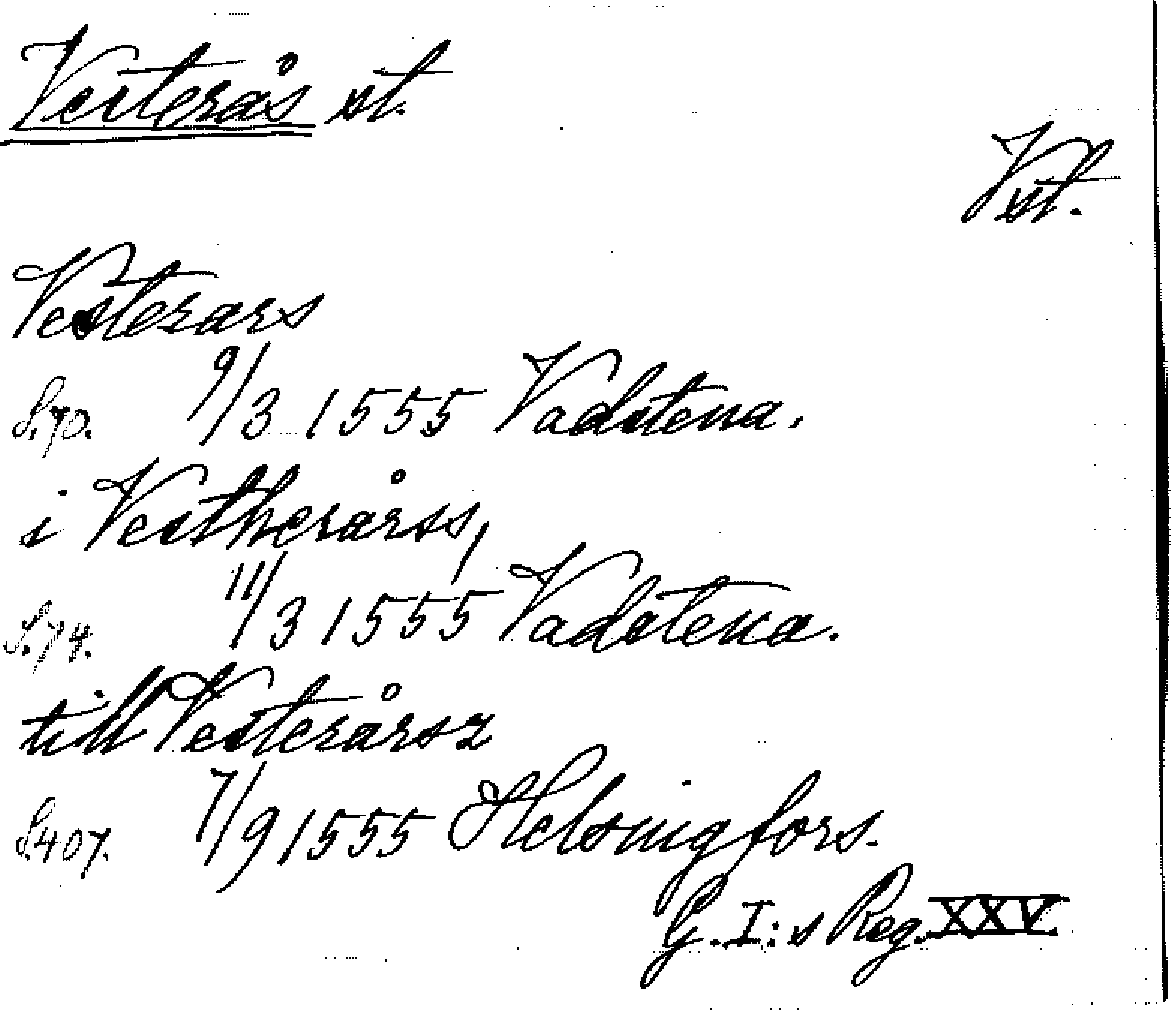 Vesterås st.
Vst.
Vesterars
S. 70. 9/3 1555 Vadstena.
i Vestherårss,
S. 74. 11/3 1555 Vadstena.
till Vesterårsz
S. 407. 7/9 1555 Helsingfors.
G. I:s Reg. XXV.